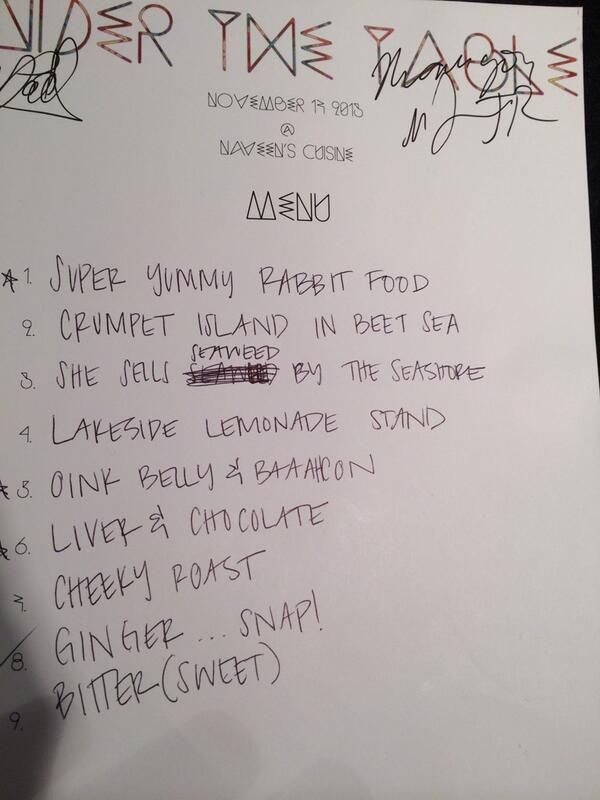 UNDER THE TABLE
NOVEMBER 17 2013
@
NAVEEN'S CUISINE
MENU
1. SUPER YUMMY RABBIT FOOD
2. CRUMPET ISLAND IN BEET SEA
SEAWEED
3. SHE SELLS SEAWEED BY THE SEASHORE
4. LAKESIDE LEMONADE STAND
5. OINK BELLY & BAAAHCON
6. LIVER & CHOCOLATE
7. CHEEKY ROAST
8. GINGER ... SNAP!
9. BITTER (SWEET)